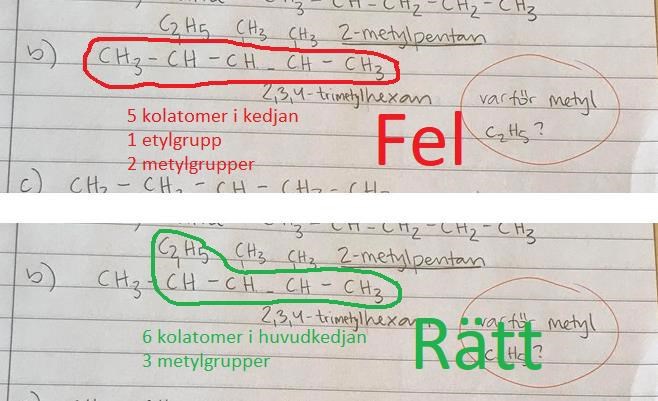 CH - CH2 - CH2 - CH3
C2H5 CH3 CH3 2-metylpentan
b) CH3 - CH - CH - CH - CH3
2,3,4-trimetylhexan
varför metyl
C2H5?
5 kolatomer i kedjan
1 etylgrupp
2 metylgrupper
Fel
c) CH3 - CH2 - CH - CH2 -
CH3 - CH - CH2 - CH2 - CH3
C2H5 CH3 CH3 2-metylpentan
b) CH3 - CH - CH - CH - CH3
2,3,4-trimetylhexan
varför metyl
C2H5?
6 kolatomer i huvudkedjan
3 metylgrupper
Rätt